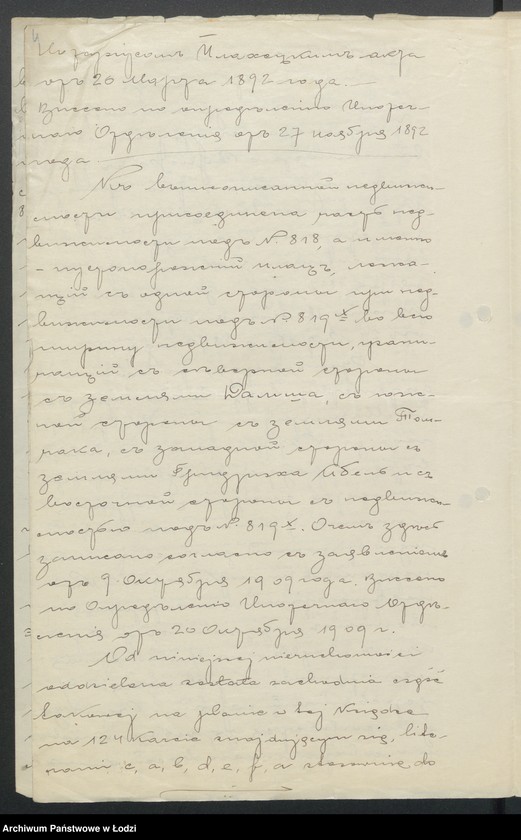 Нотаріусомъ Плахецкимъ акта
отъ 20 Марта 1892 года. —
Внесено по опредѣленію Ипотеч-
наго Отдѣленія отъ 27 ноября 1892
года —
Къ вышеописанной недвижи-
мости присоединена часть нед-
вижимости подъ № 818, а именно
- пустопорожній плацъ, лежа-
щій съ одной стороны при нед-
вижимости подъ № 819 х во всю
ширину недвижимости, грани-
чащій съ сѣверной стороны
съ землями Далиша, съ юж-
ной стороны съ землями Том-
чака, съ западной стороны съ
землями Фридриха Абель и съ
восточной стороны съ недвижи-
мостью подъ № 819 х. О чемъ здѣсь
записано согласно съ заявленіемъ
отъ 9 Октября 1909 года. Внесено
по Опредѣленію Ипотечнаго Отдѣ-
ленія отъ 20 Октября 1909 г.
Od niniejszej nieruchomości
oddzielona została zachodnia część
takowej na planie w tej Księdze
na 124 karcie znajdującym się, lite-
rami c, a, b, d, e, f, a stosownie do
Archiwum Państwowe w Łodzi